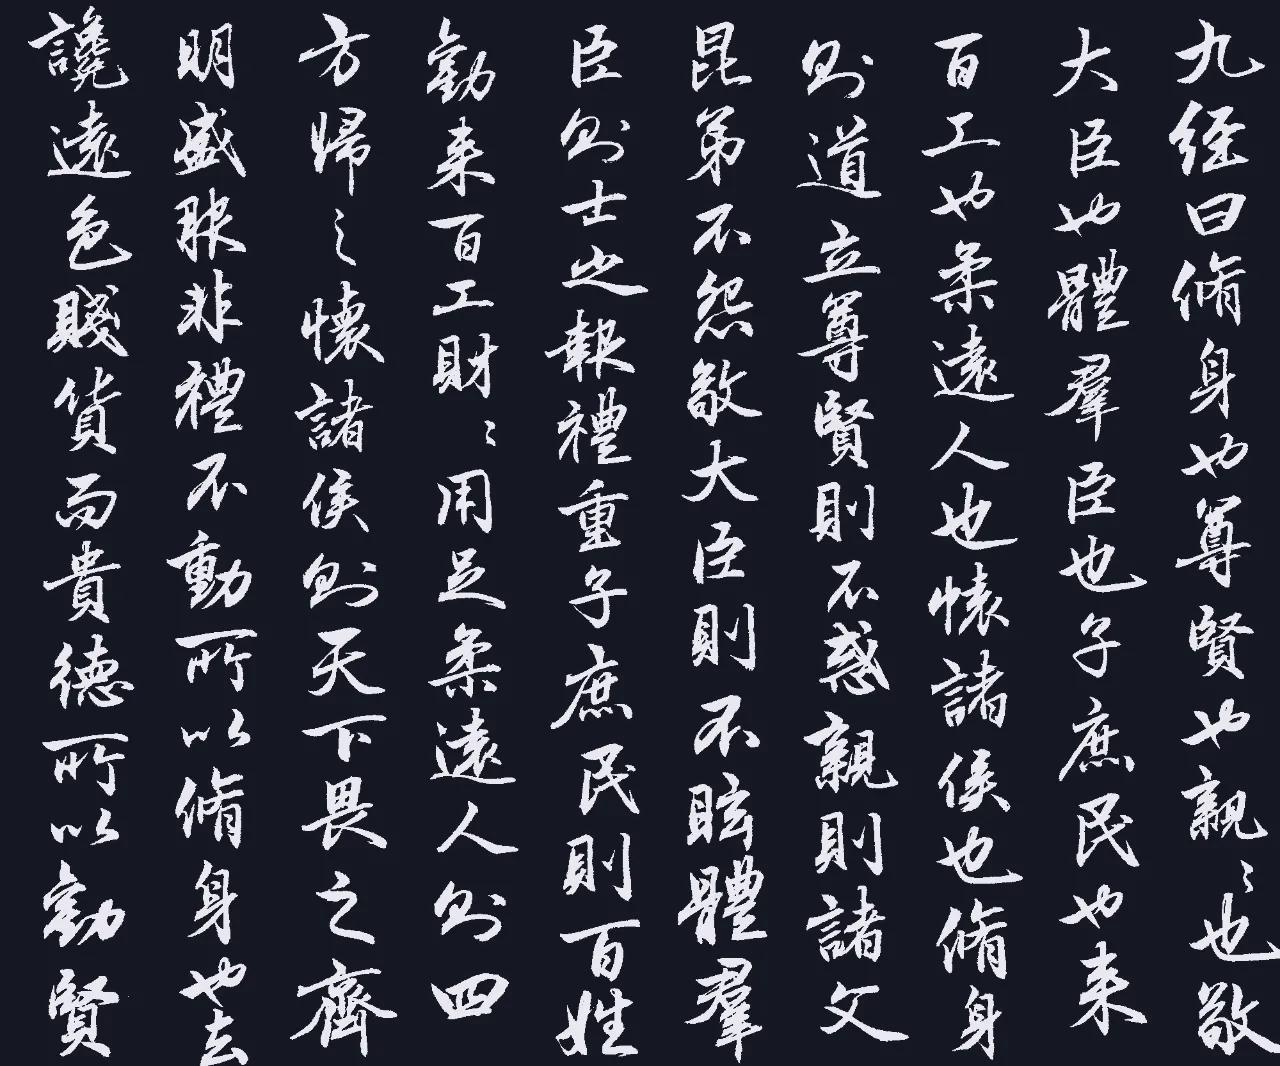 九經曰脩身也尊賢也親〻也敬
大臣也體羣臣也子庶民也来
百工也柔遠人也懷諸侯也脩身
則道立尊賢則不惑親則諸父
昆弟不怨敬大臣則不眩體羣
臣則士之報禮重子庶民則百姓
勸来百工財〻用足柔遠人則四
方歸之懷諸侯則天下畏之齊
明盛服非禮不動所以脩身也去
讒遠色賤貨而貴德所以勸賢